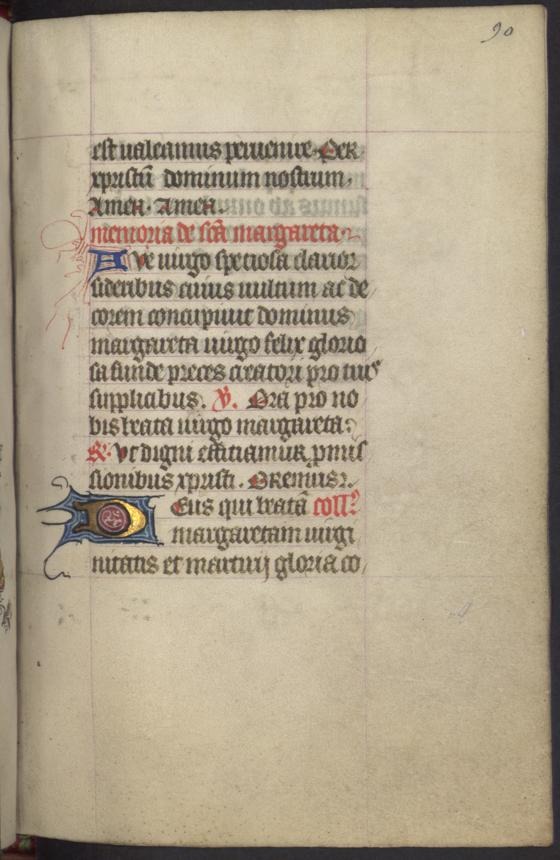 90
est ualeamus peruenire. Per
xpristū dominum nostrum.
Amen. Amen.
memoria de scā margareta
Aue uirgo speciosa clarior
sideribus cuius uultum ac de
corem concupiuit dominus
margareta uirgo felix glorio
sa funde preces creatori pro tuis
supplicibus. V. Ora pro no
bis beata uirgo margareta.
R. Vt digni efficiamur pmis
sionibus xpristi. Oremus.
Deus qui beatā coll
margaretam uirgi
nitatis et martirij gloria co